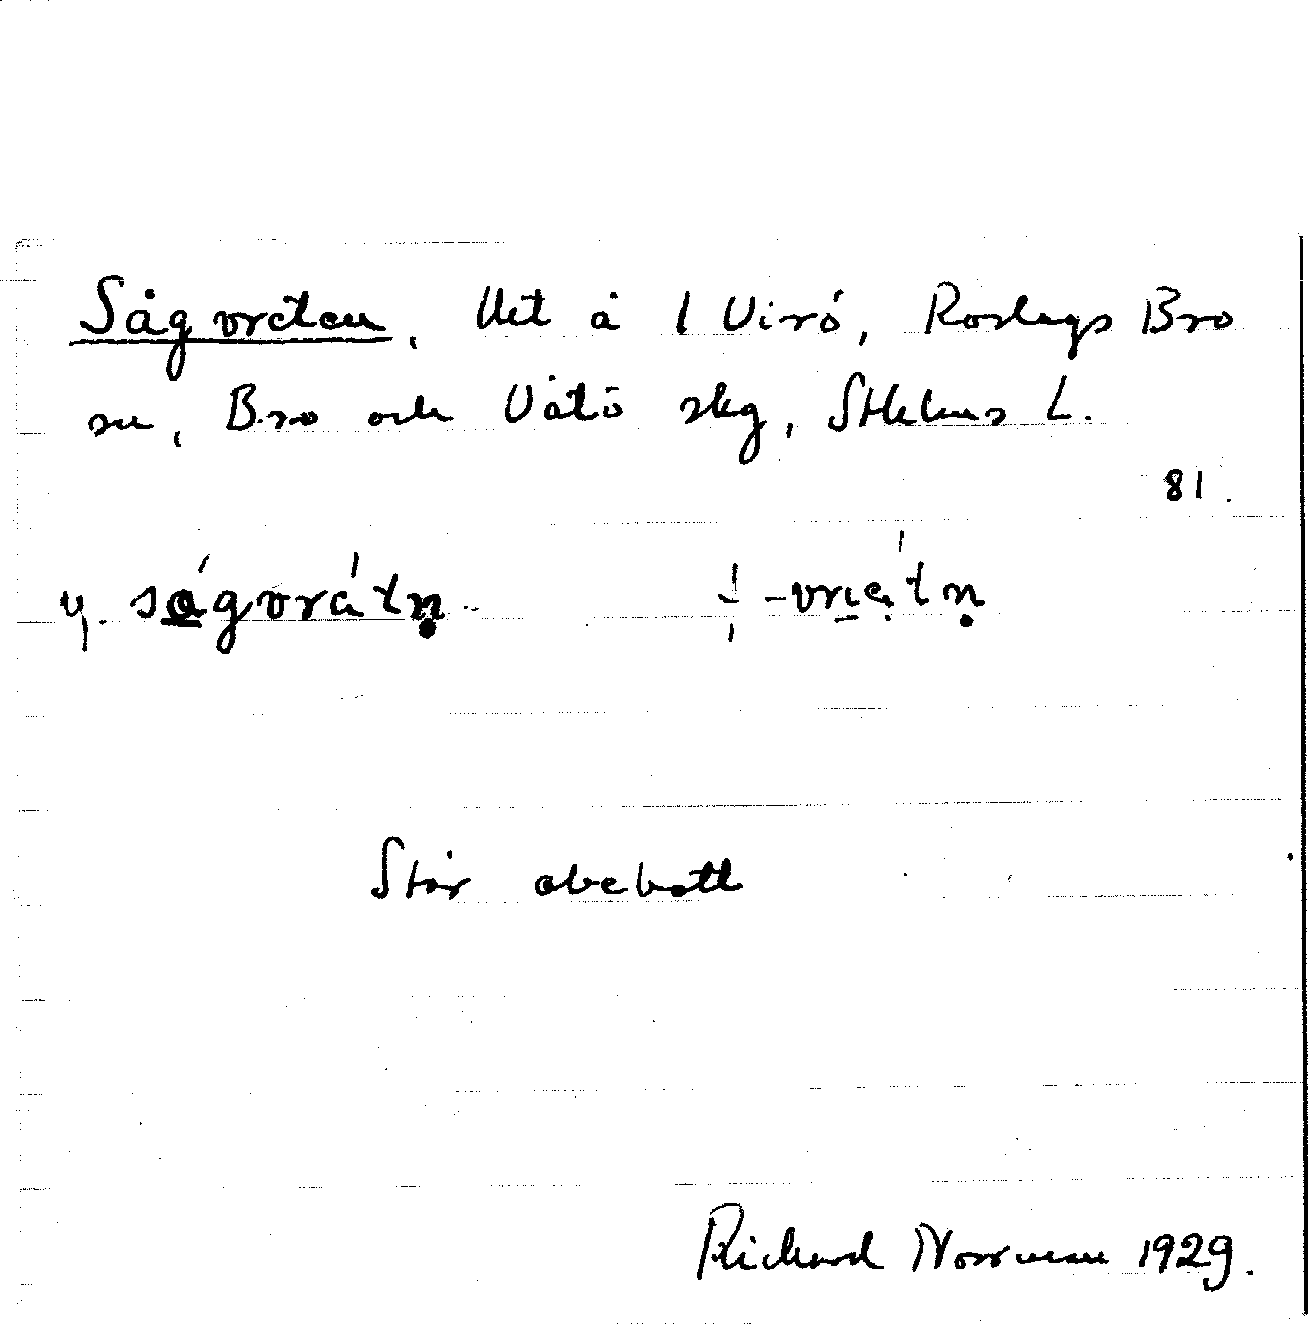 Sågvreten, Uet å 1 Virö, Roslags Bro
sn, Bro och Vätö skg, Sthlms L.
81.
y. sågvrätn
-vriätn
Står obebott
Richard Norrman 1929.